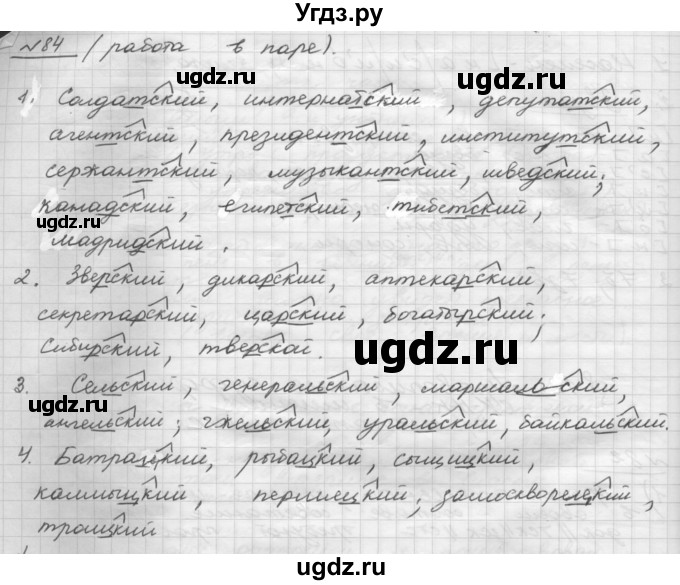 Угдз.ру
№84 (работа в паре).
1. Солдатский, интернатский, депутатский,
агентский, президентский, институтский,
сержантский, музыкантский, шведский;
канадский, египетский, тибетский,
мадридский.
2. Зверский, дикарский, аптекарский,
секретарский, царский, богатырский;
Сибирский, тверской.
3. Сельский, генеральский, маршальский,
ангельский; гжельский, уральский, байкальский.
4. Батрацкий, рыбацкий, сыщицкий,
калмыцкий, пермяцкий; замоскворецкий,
троицкий
ugdz.ru
ugdz.ru
ugdz.ru
ugdz.ru
ugdz.ru
ugdz.ru
ugdz.ru
ugdz.ru
Угдз.ру